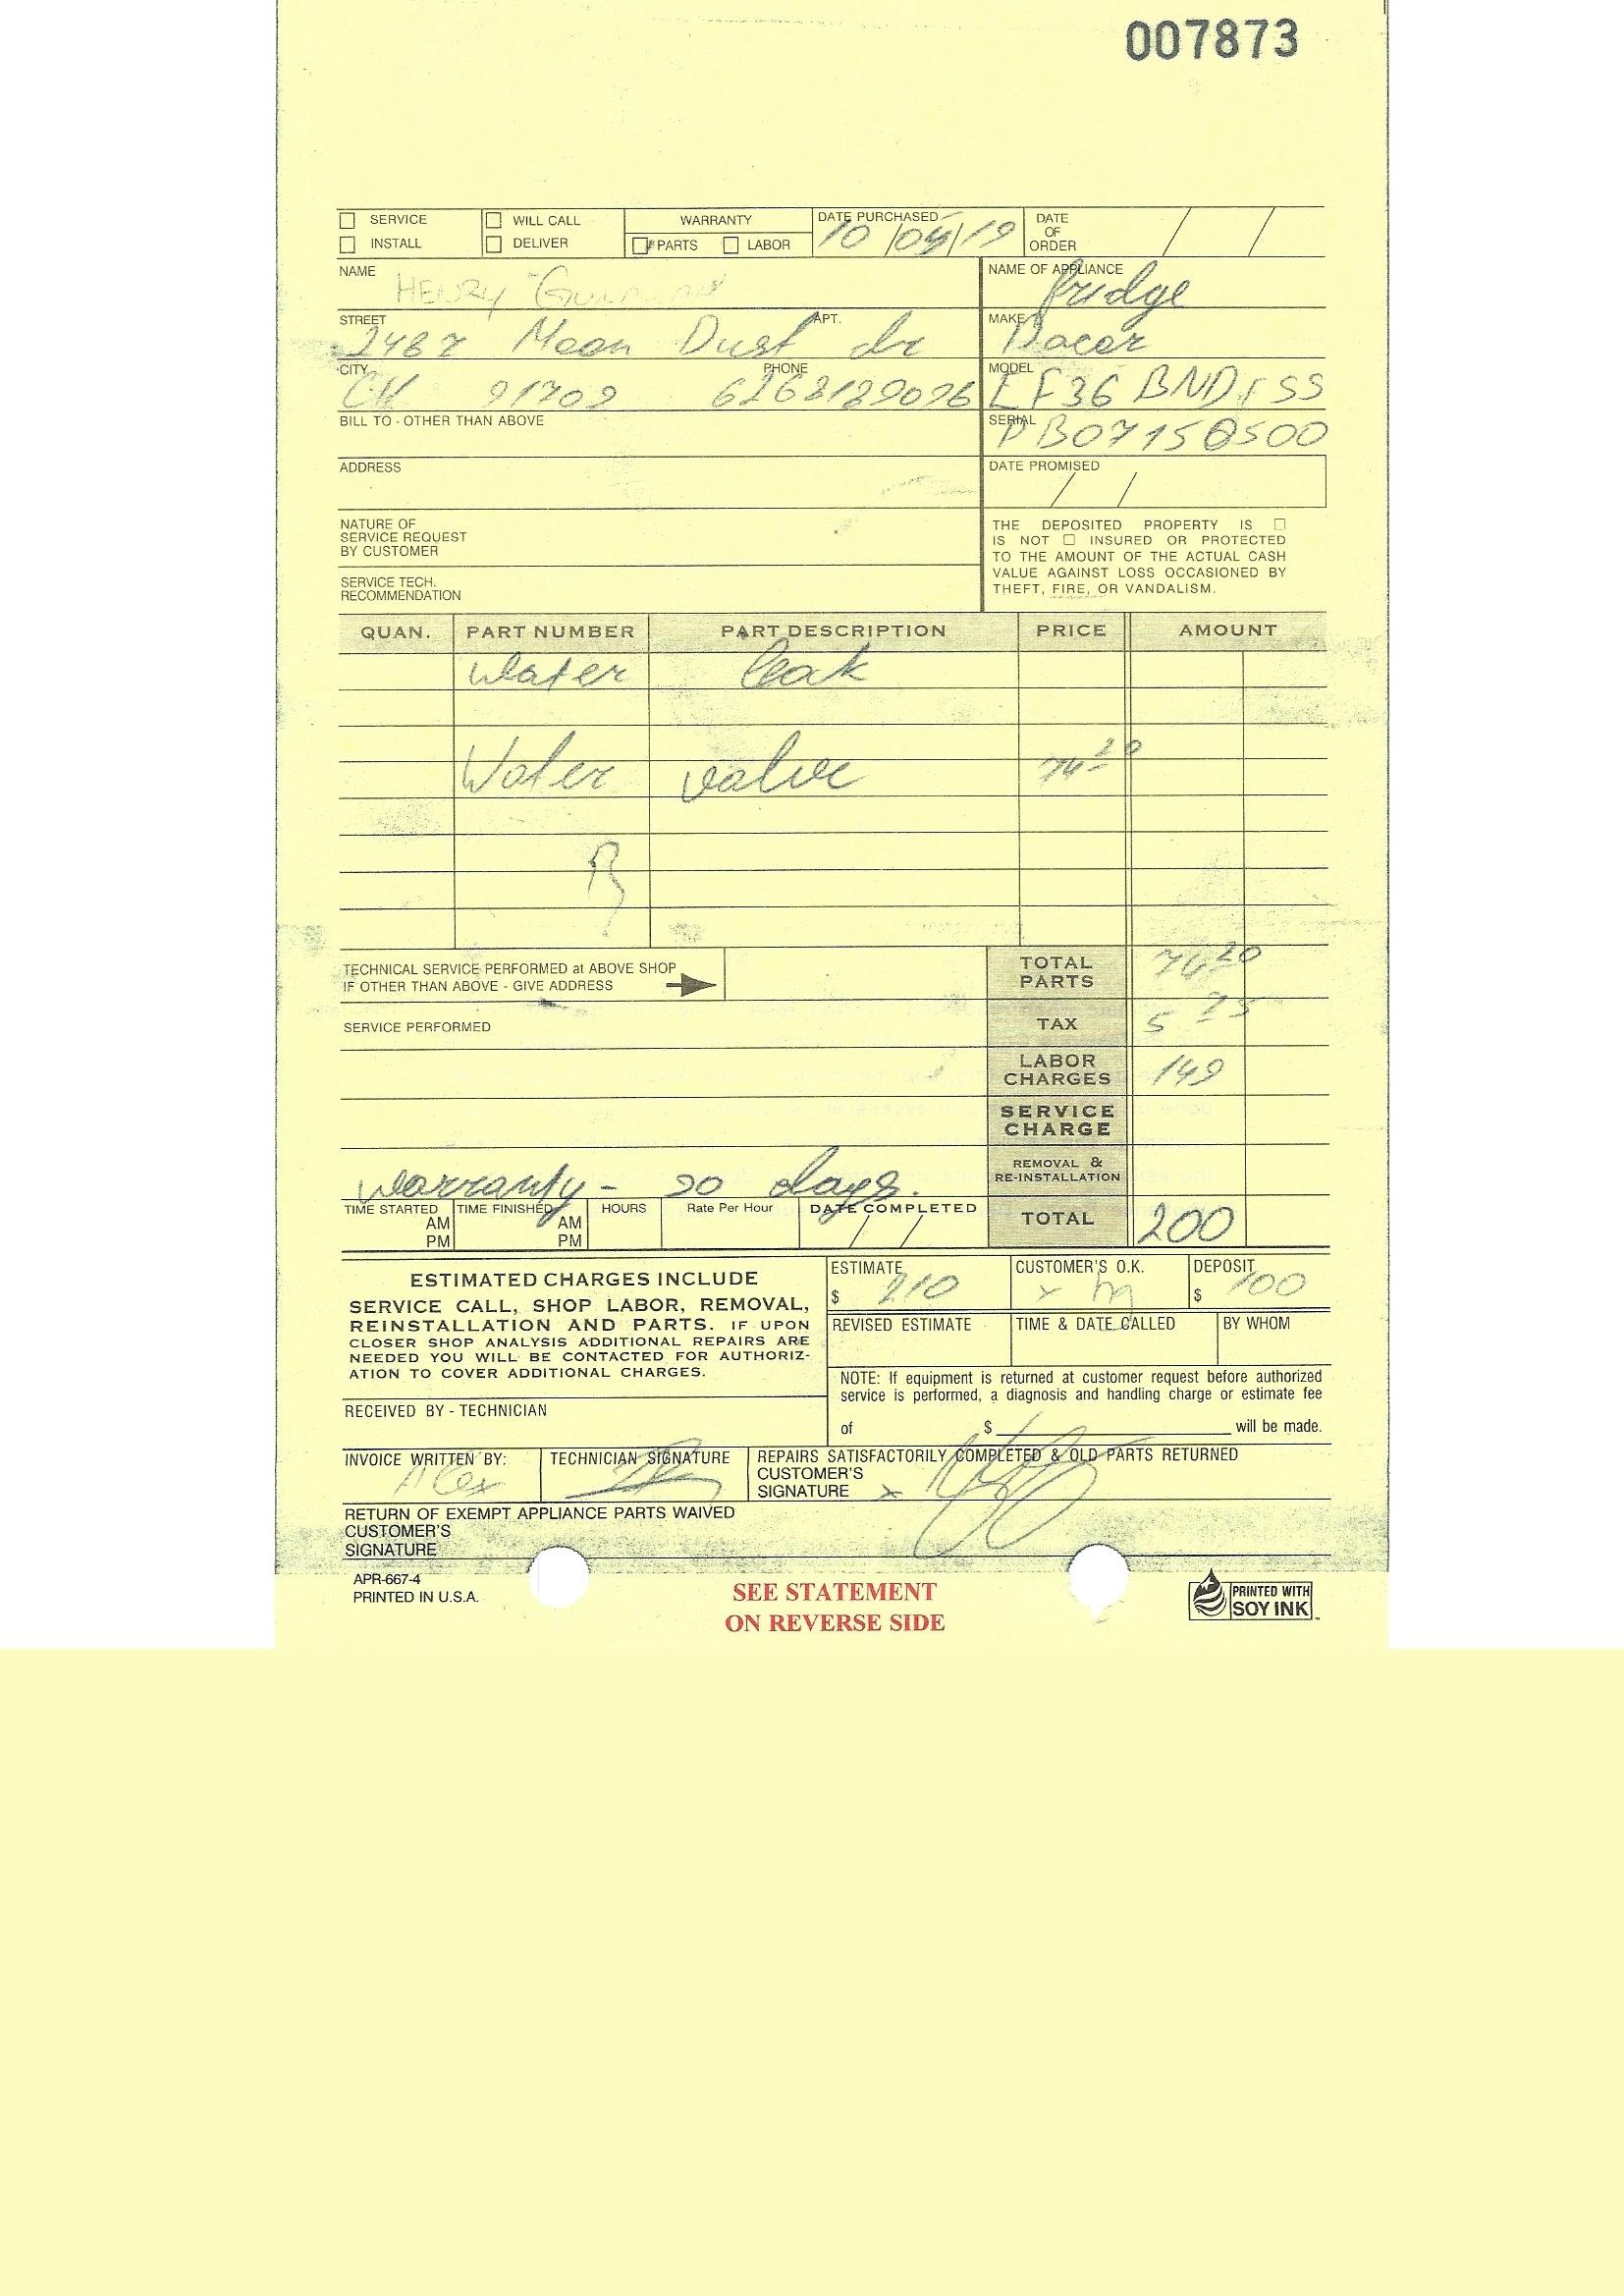 007873
SERVICE WILL CALL WARRANTY DATE PURCHASED DATE OF ORDER
INSTALL DELIVER PARTS LABOR 10/04/19
NAME HENRY
NAME OF APPLIANCE fridge
STREET Moon Dust dr APT.
MAKE Dacor
CITY CH 91709 PHONE 6268189096
MODEL EF36 BND SS
BILL TO - OTHER THAN ABOVE
SERIAL
ADDRESS
DATE PROMISED
NATURE OF
SERVICE REQUEST
BY CUSTOMER
SERVICE TECH.
RECOMMENDATION
THE DEPOSITED PROPERTY IS
IS NOT INSURED OR PROTECTED
TO THE AMOUNT OF THE ACTUAL CASH
VALUE AGAINST LOSS OCCASIONED BY
THEFT, FIRE, OR VANDALISM.
QUAN. PART NUMBER PART DESCRIPTION PRICE AMOUNT
water leak
Water valve 74 20
TECHNICAL SERVICE PERFORMED at ABOVE SHOP
IF OTHER THAN ABOVE - GIVE ADDRESS
TOTAL PARTS 74 20
SERVICE PERFORMED
TAX 5 75
LABOR CHARGES 149
SERVICE CHARGE
REMOVAL & RE-INSTALLATION
warranty - 90 days.
TIME STARTED AM PM TIME FINISHED AM PM HOURS Rate Per Hour DATE COMPLETED
TOTAL 200
ESTIMATED CHARGES INCLUDE
SERVICE CALL, SHOP LABOR, REMOVAL,
REINSTALLATION AND PARTS. IF UPON
CLOSER SHOP ANALYSIS ADDITIONAL REPAIRS ARE
NEEDED YOU WILL BE CONTACTED FOR AUTHORIZ-
ATION TO COVER ADDITIONAL CHARGES.
ESTIMATE $ 210 CUSTOMER'S O.K. x DEPOSIT $ 100
REVISED ESTIMATE TIME & DATE CALLED BY WHOM
NOTE: If equipment is returned at customer request before authorized
service is performed, a diagnosis and handling charge or estimate fee
of $ will be made.
RECEIVED BY - TECHNICIAN
INVOICE WRITTEN BY: Alex
TECHNICIAN SIGNATURE
REPAIRS SATISFACTORILY COMPLETED & OLD PARTS RETURNED
CUSTOMER'S
SIGNATURE x
RETURN OF EXEMPT APPLIANCE PARTS WAIVED
CUSTOMER'S
SIGNATURE
APR-667-4
PRINTED IN U.S.A.
SEE STATEMENT
ON REVERSE SIDE
PRINTED WITH
SOY INK